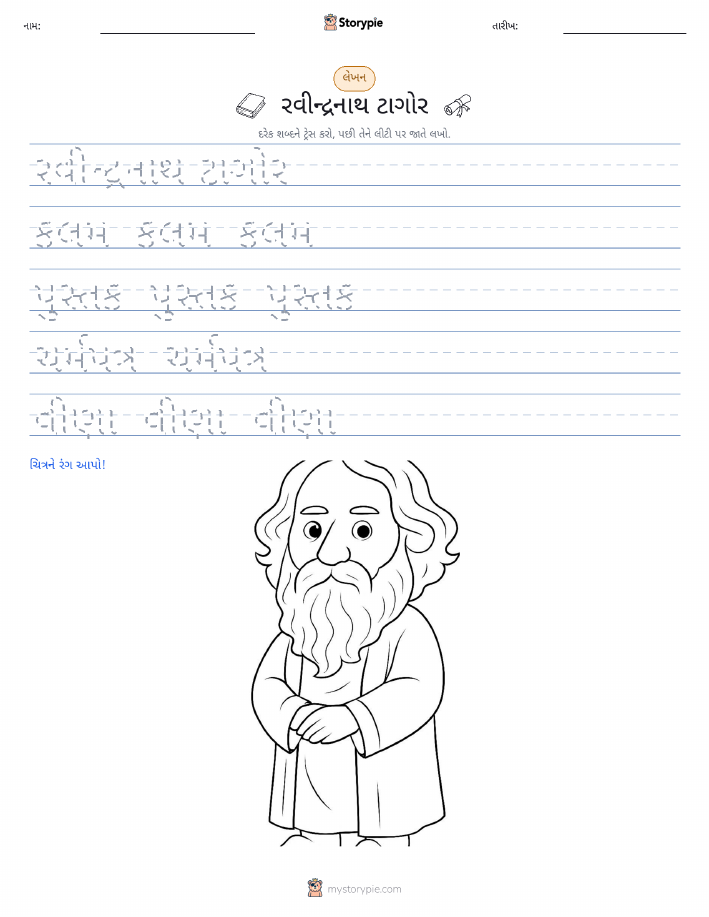 નામ: Storypie તારીખ:
લેખન
રવીન્દ્રનાથ ટાગોર
દરેક શબ્દને ટ્રેસ કરો, પછી તેને લીટી પર જાતે લખો.
રવીન્દ્રનાથ ટાગોર
કલમ કલમ કલમ
પુસ્તક પુસ્તક પુસ્તક
ચર્મપત્ર ચર્મપત્ર
વીણા વીણા વીણા
ચિત્રને રંગ આપો!
mystorypie.com